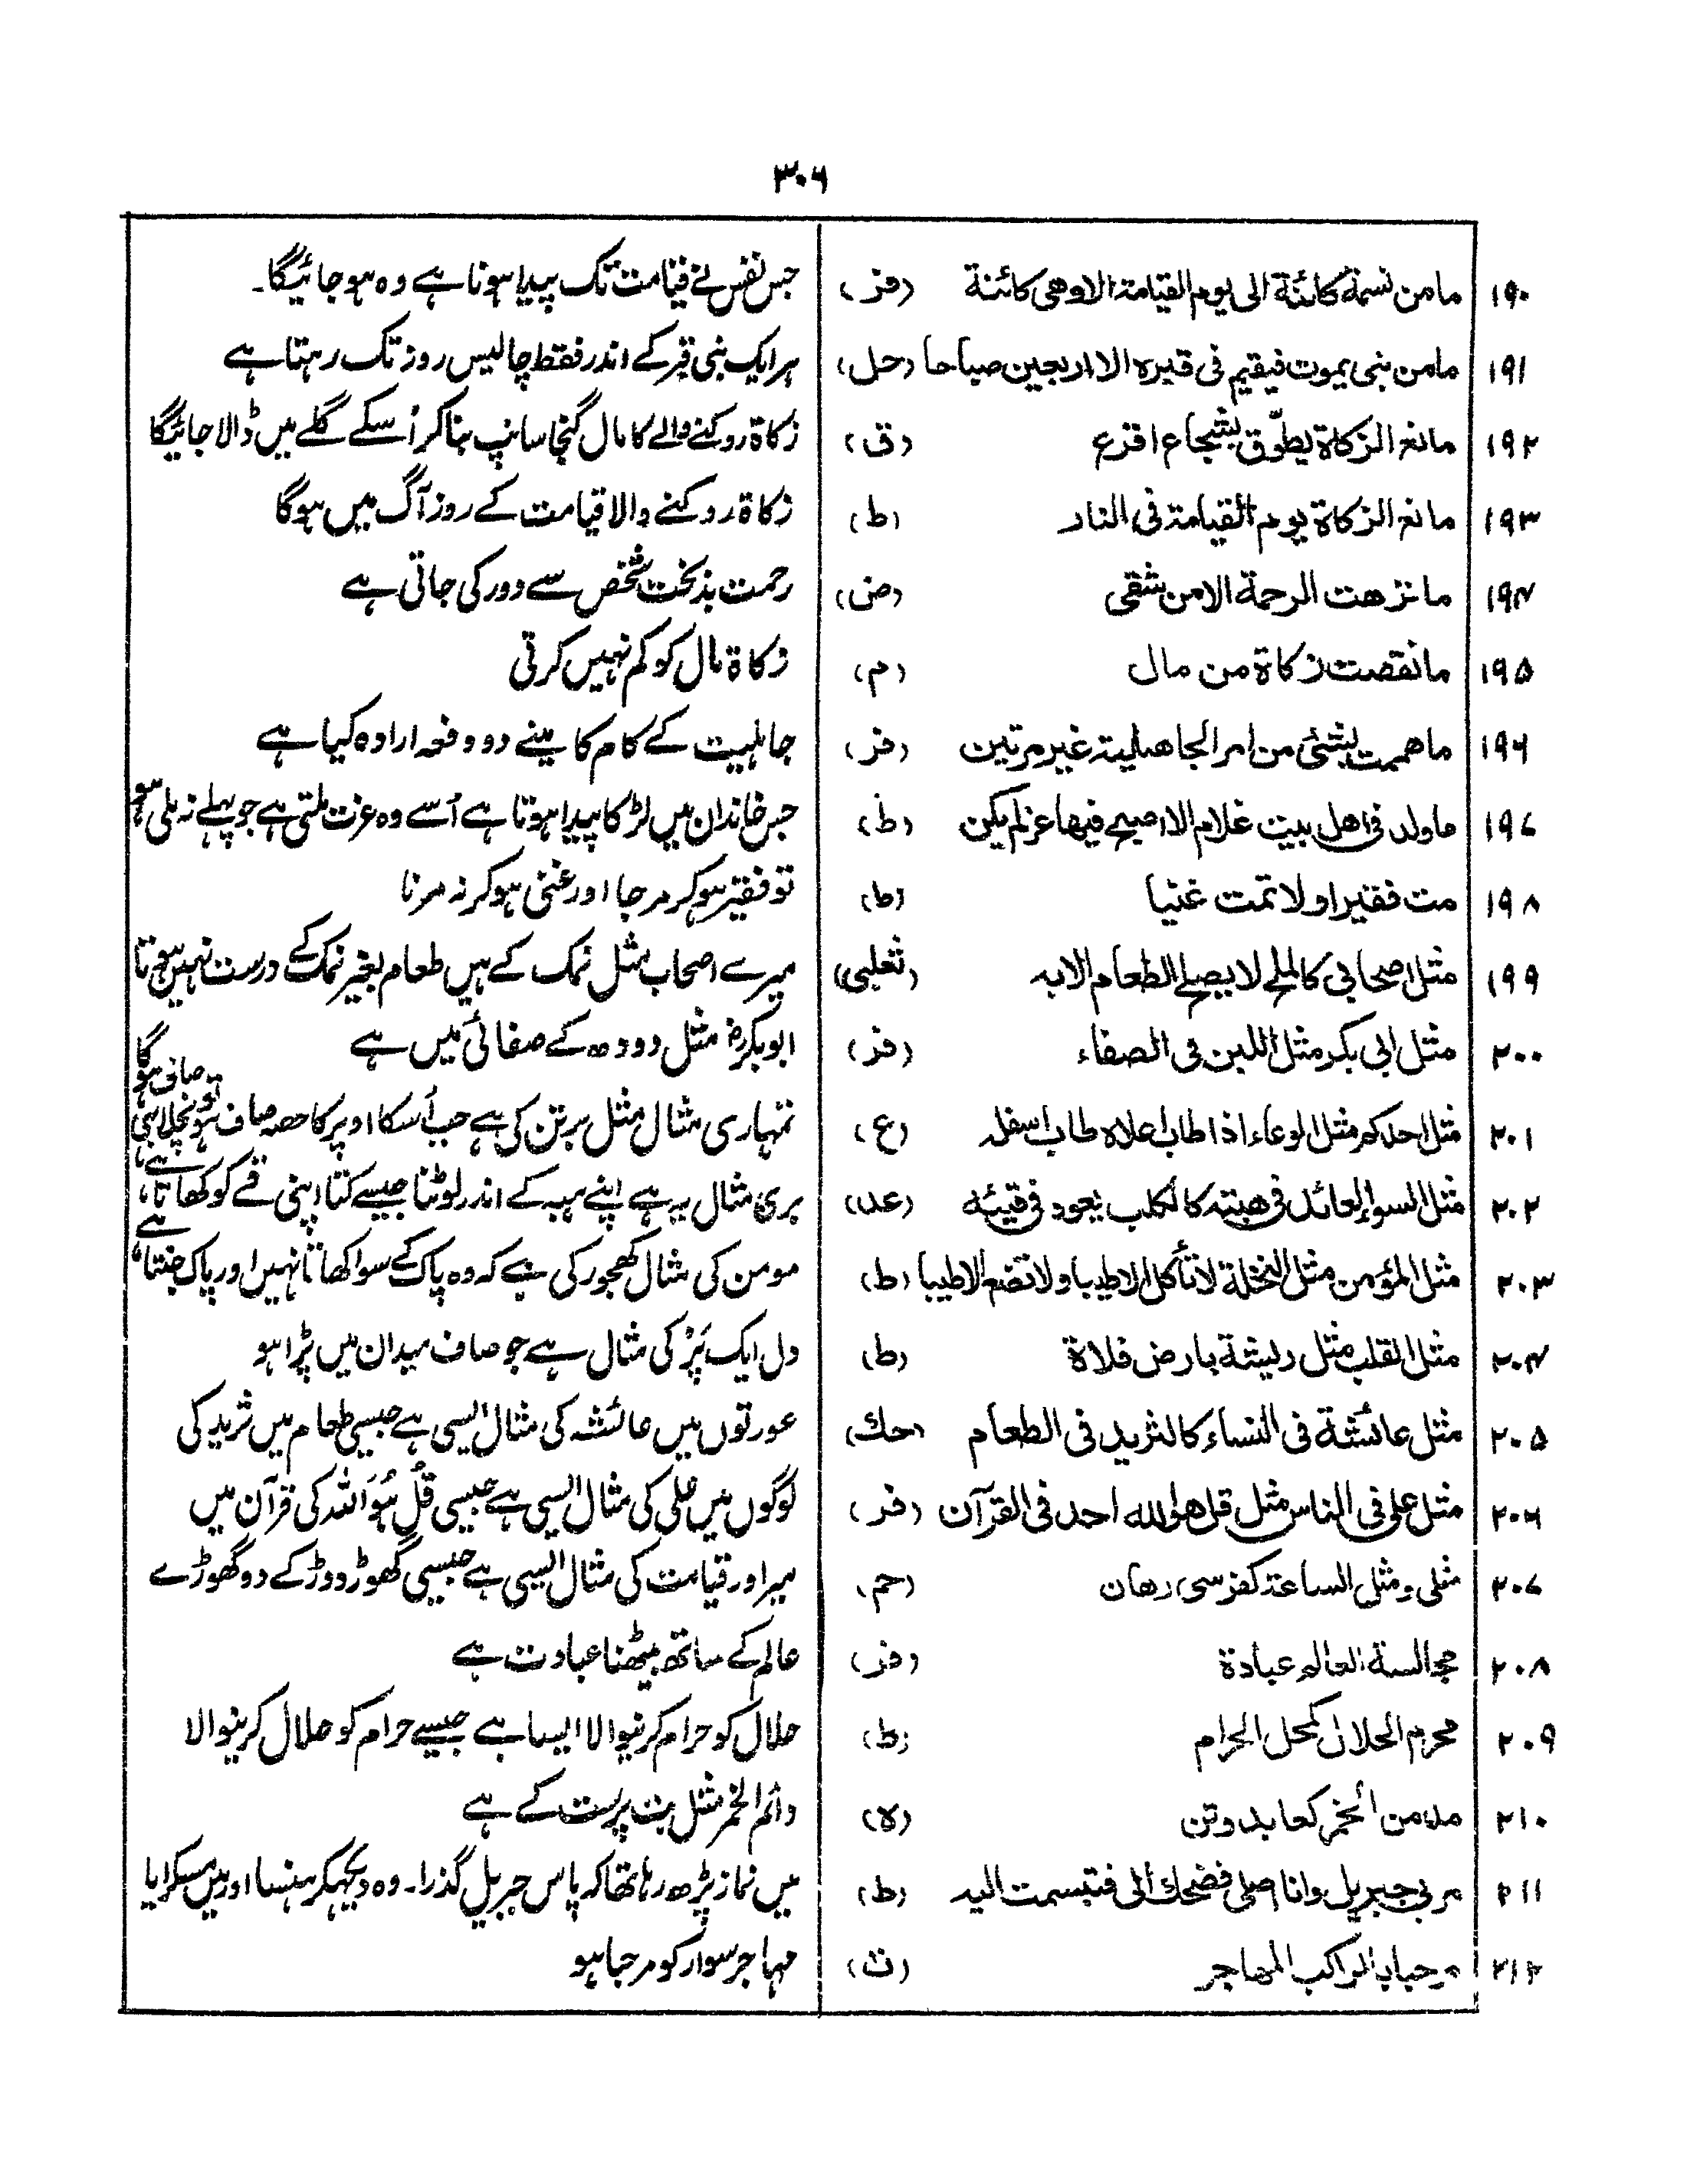 ۳۰۶
۱۹۰ مامن نسمة كائنة الى يوم القيامة الا وهي كائنة (فز) جس نفس نے قیامت تک پیدا ہونا ہے وہ ہو جائیگا۔
۱۹۱ مامن نبى يموت فيقيم فى قبره الا اربعين صباحا (حل) ہر ایک نبی قبر کے اندر فقط چالیس روز تک رہتا ہے
۱۹۲ مانع الزكاة يطوّق بشجاع اقرع (ق) زکاة روکنے والے کا مال گنجا سانپ بنا کر اُسکے گلے میں ڈالا جائیگا
۱۹۳ مانع الزكاة يوم القيامة فى النار (ط) زکاة روکنے والا قیامت کے روز آگ میں ہوگا
۱۹۴ مانزهت الرحمة الا من شقى (ض) رحمت بدبخت شخص سے دور کی جاتی ہے
۱۹۵ مانقصت زكاة من مال (م) زکاة مال کو کم نہیں کرتی
۱۹۶ ماهممت بشئ من امر الجاهلية غير مرتين (فز) جاہلیت کے کام کا مینے دو دفعہ ارادہ کیا ہے
۱۹۷ ماولد فى اهل بيت غلام الا اصبح فيها عز لم يكن (ط) جس خاندان میں لڑکا پیدا ہوتا ہے اُسے وہ عزت ملتی ہے جو پہلے نہ ملی ہو
۱۹۸ مت فقيرا ولا تمت غنيا (ط) تو فقیر ہو کر مر جا اور غنی ہو کر نہ مرنا
۱۹۹ مثل اصحابى كالملح لا يصلح الطعام الا به (ثعلبى) میرے اصحاب مثل نمک کے ہیں طعام بغیر نمک کے درست نہیں ہوتا
۲۰۰ مثل ابى بكر مثل اللبن فى الصفاء (فز) ابوبکرؓ مثل دودھ کے صفائی میں ہے
۲۰۱ مثل احدكم مثل الوعاء اذا طاب اعلاه طاب اسفله (ع) تمہاری مثال مثل برتن کی ہے جب اُسکا اوپر کا حصہ صاف ہو تو نچلا بھی صاف ہوگا
۲۰۲ مثل السوء العائد فى هبته كالكلب يعود فى قيئه (عد) بری مثال یہ ہے اپنے ہبہ کے اندر لوٹنا جیسے کتا اپنی قے کو کھاتا ہے
۲۰۳ مثل المؤمن مثل النخلة لا تأكل الا طيبا ولا تضع الا طيبا (ط) مومن کی مثال کھجور کی ہے کہ وہ پاک کے سوا کھاتا نہیں اور پاک جنتا ہے
۲۰۴ مثل القلب مثل ريشة بارض فلاة (ط) دل ایک پَر کی مثال ہے جو صاف میدان میں پڑا ہو
۲۰۵ مثل عائشة فى النساء كالثريد فى الطعام (حك) عورتوں میں عائشہ کی مثال ایسی ہے جیسی طعام میں ثرید کی
۲۰۶ مثل على فى الناس مثل قل هو الله احد فى القرآن (فر) لوگوں میں علی کی مثال ایسی ہے جیسی قُل ہُوَ اللہ کی قرآن میں
۲۰۷ مثلى ومثل الساعة كفرسى رهان (حم) میرا اور قیامت کی مثال ایسی ہے جیسی گھوڑ دوڑ کے دو گھوڑے
۲۰۸ مجالسة العالم عبادة (فز) عالم کے ساتھ بیٹھنا عبادت ہے
۲۰۹ محرم الحلال كمحل الحرام (ط) حلال کو حرام کرنیوالا ایسا ہے جیسے حرام کو حلال کرنیوالا
۲۱۰ مدمن الخمر كعابد وثن (ه) دائم الخمر مثل بت پرست کے ہے
۲۱۱ مر بى جبريل وانا اصلى فضحك الى فتبسمت اليه (ط) میں نماز پڑھ رہا تھا کہ پاس جبریل گذرا۔ وہ دیکھکر ہنسا اور میں مسکرایا
۲۱۲ مرحبا بالراكب المهاجر (ت) مہاجر سوار کو مرحبا ہو